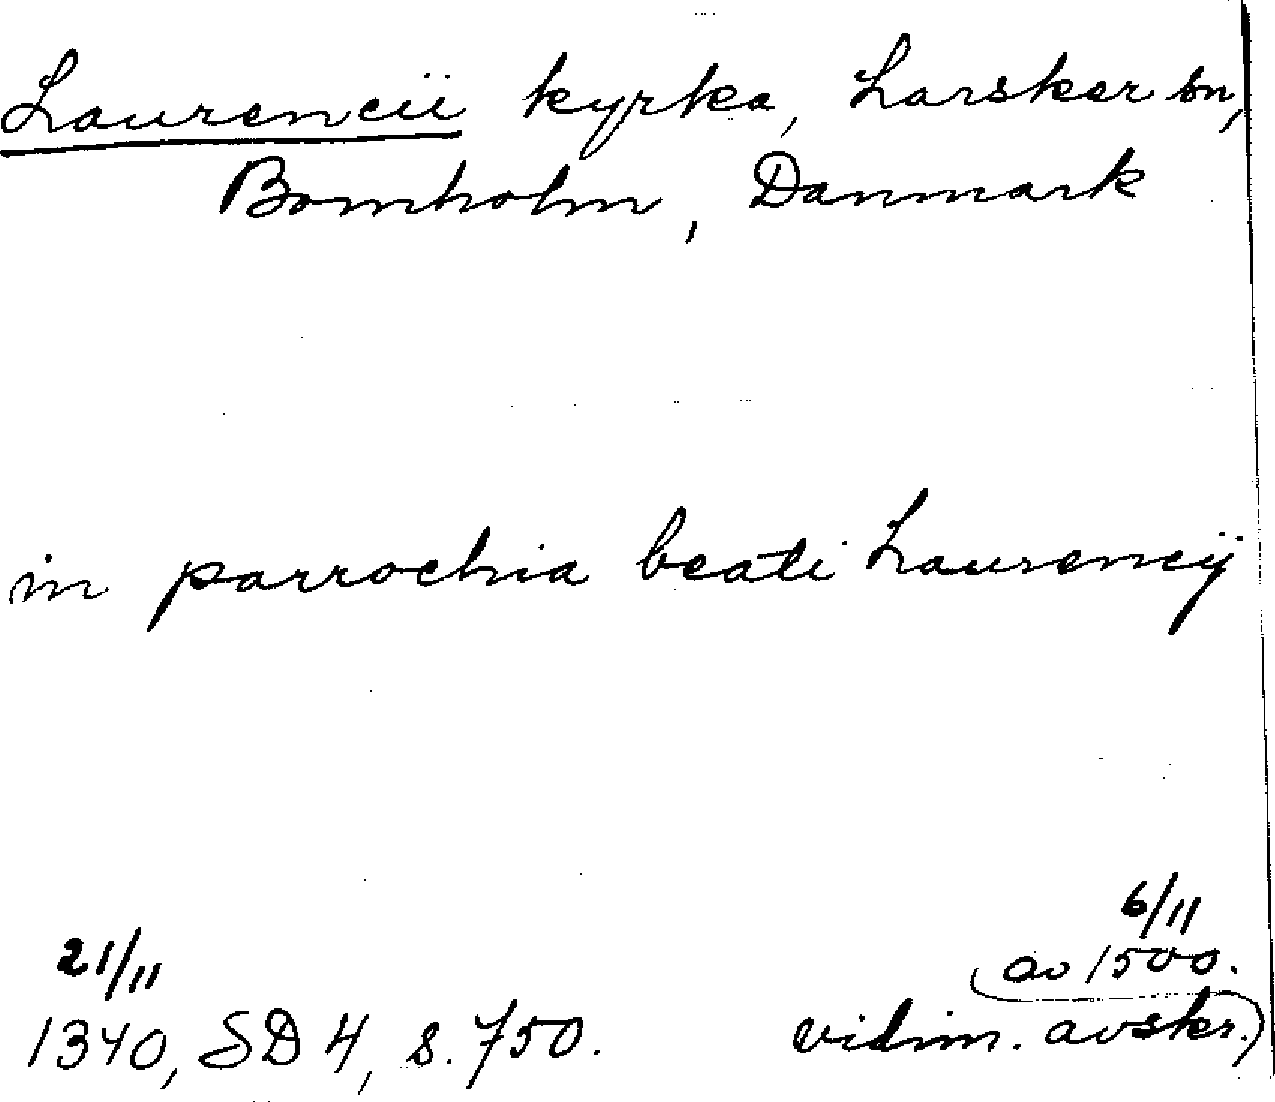 Laurencii kyrka, Larsker sn,
Bornholm, Danmark
in parrochia beati Laurencij
21/11
1340, SD 4, s. 750.
6/11
av 1500.
vidim. avskr.)